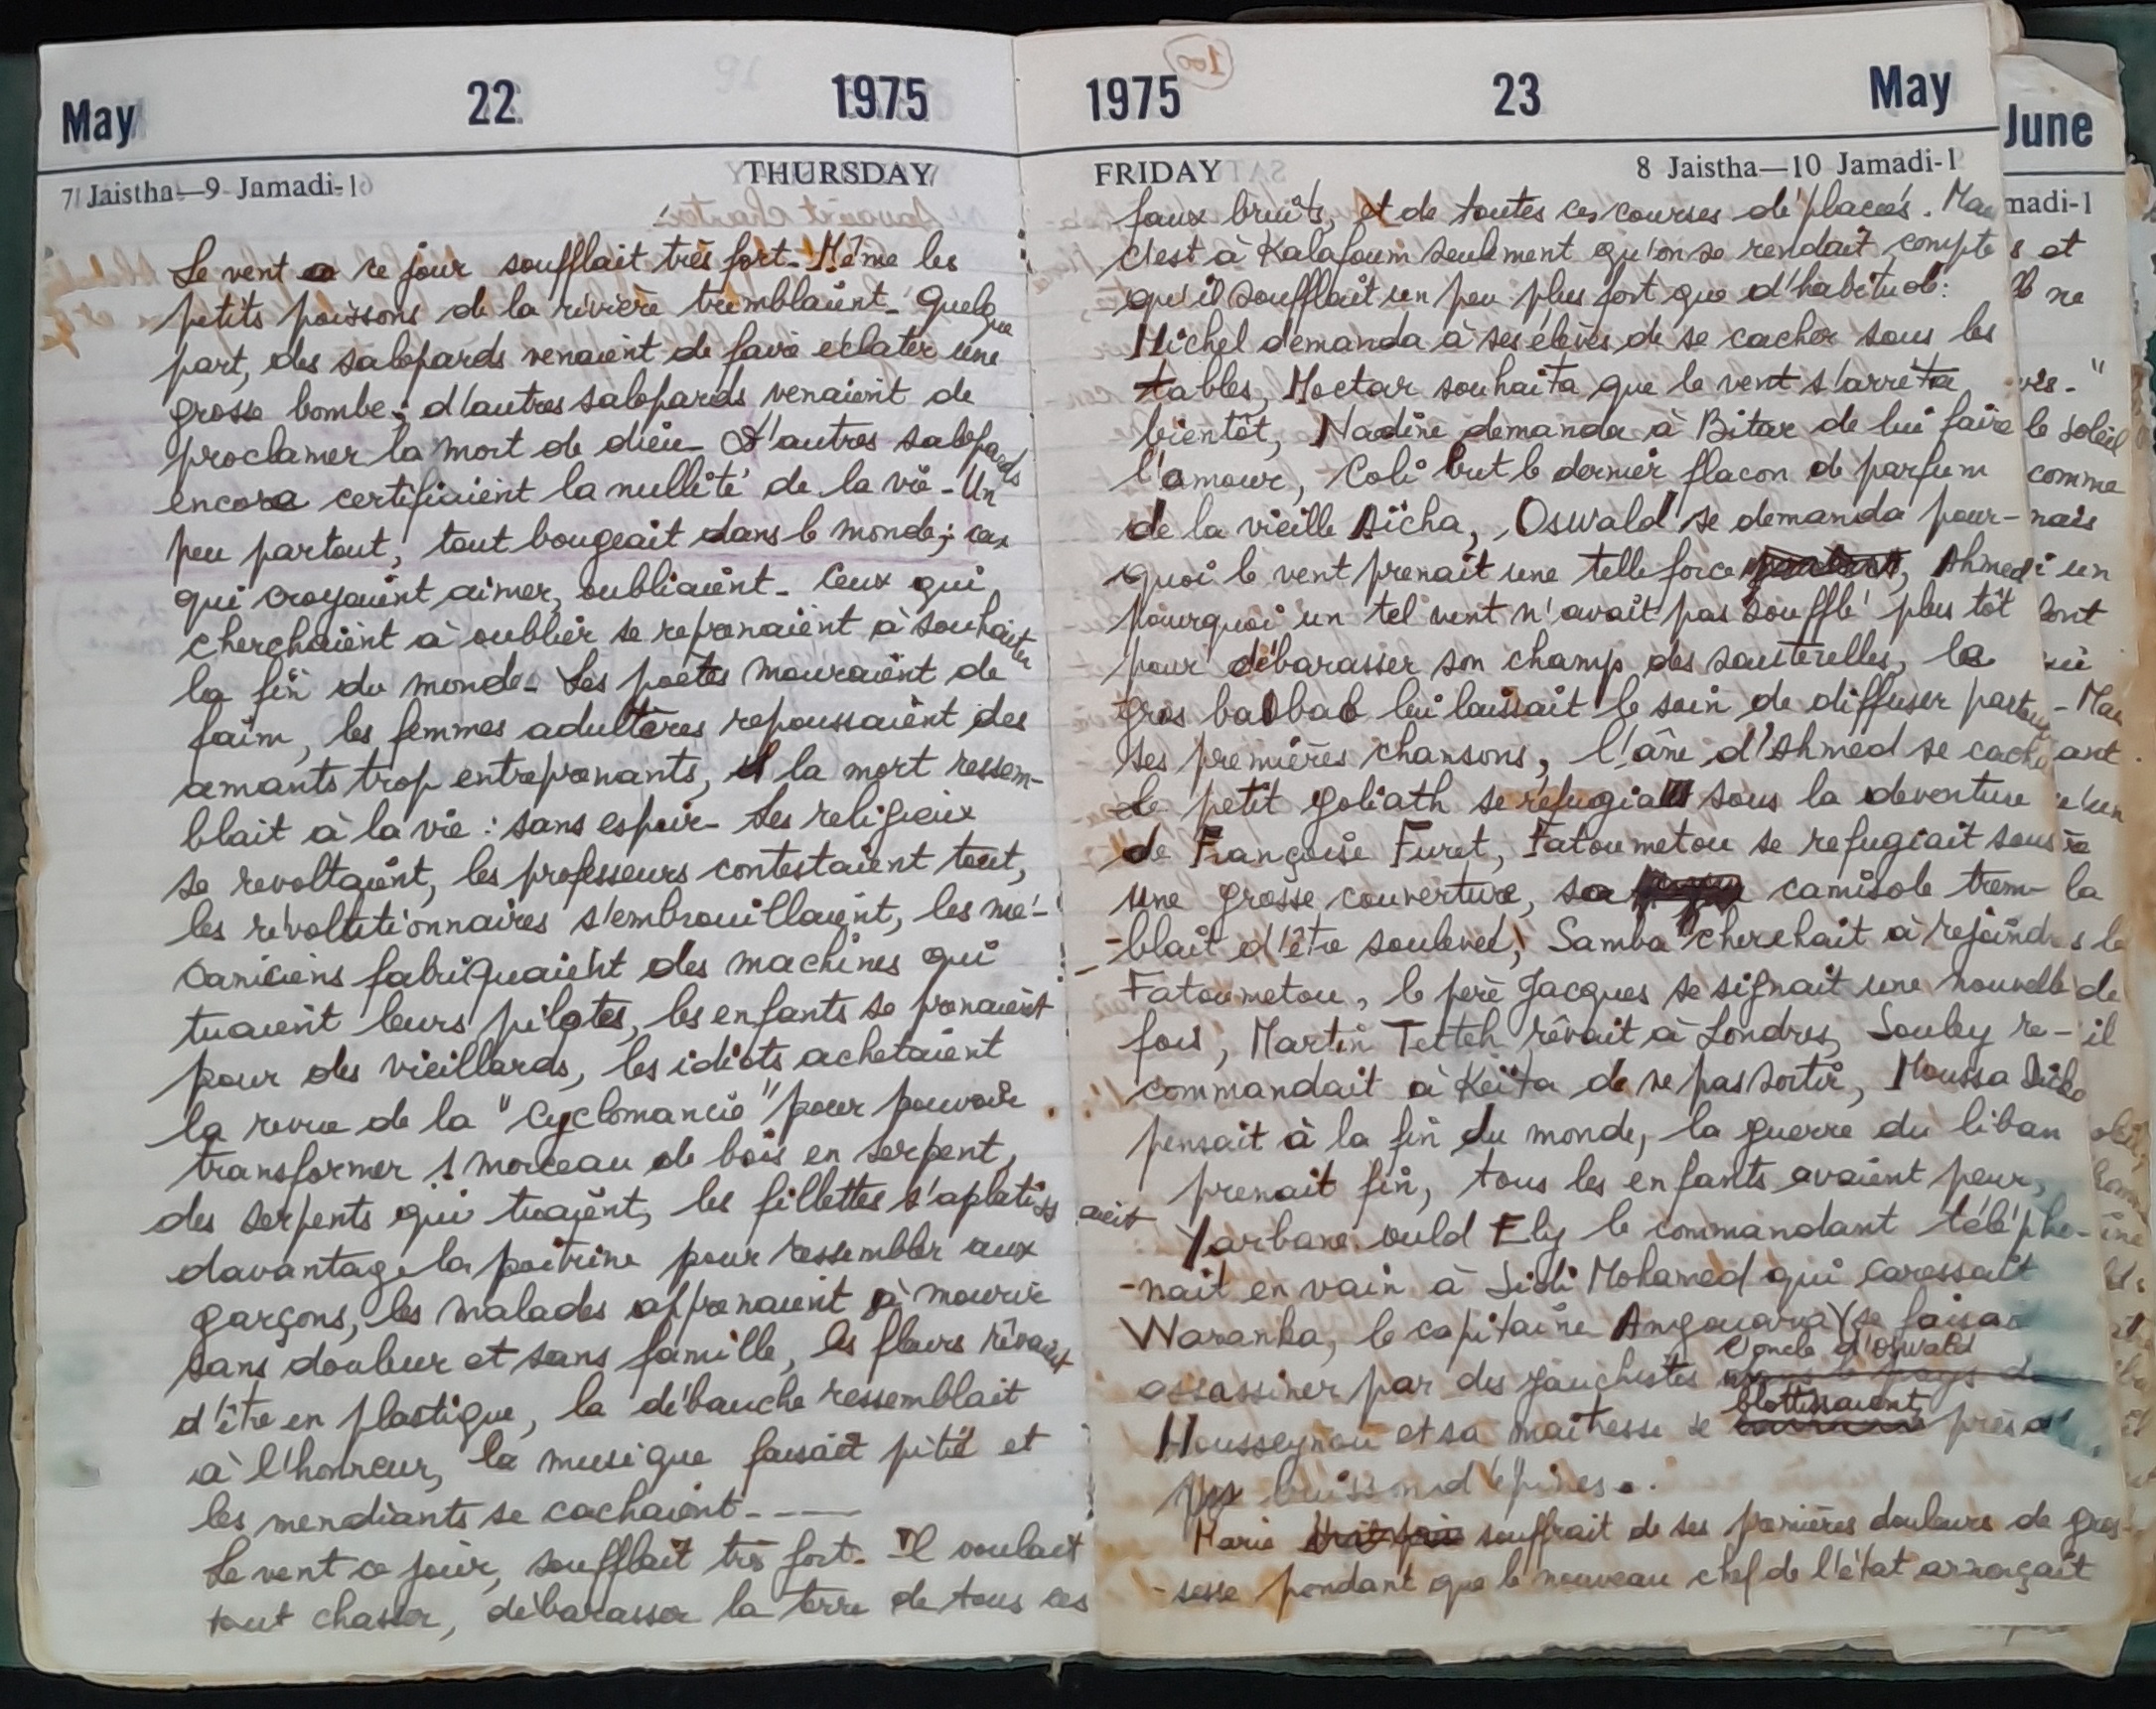 May 22 1975
THURSDAY
7 Jaistha—9 Jamadi-1
Le vent ce jour soufflait très fort. Même les
petits poissons de la rivière tremblaient. Quelque
part, des salopards venaient de faire éclater une
grosse bombe; d'autres salopards venaient de
proclamer la mort de dieu. D'autres salopards
encore certifiaient la nullité de la vie. Un
peu partout, tout bougeait dans le monde; ceux
qui croyaient aimer, oubliaient. Ceux qui
cherchaient à oublier se reprenaient à souhaiter
la fin du monde. Les poètes mouraient de
faim, les femmes adultères repoussaient des
amants trop entreprenants, la mort ressem-
blait à la vie : sans espoir. Les religieux
se revoltaient, les professeurs contestaient tout,
les révoltutionnaires s'embrouillaient, les mé-
caniciens fabriquaient des machines qui
tuaient leurs pilotes, les enfants se prenaient
pour des vieillards, les idiots achetaient
la revue de la "Cyclomancie" pour pouvoir
transformer 1 morceau de bois en serpent,
des serpents qui tuaient, les fillettes s'aplatissaient
davantage la poitrine pour ressembler aux
garçons, les malades apprenaient à mourir
sans douleur et sans famille, les fleurs rêvaient
d'être en plastique, la débauche ressemblait
à l'honneur, la musique faisait pitié et
les mendiants se cachaient----
Le vent ce jour, soufflait très fort. Il voulait
tout chasser, débarasser la terre de tous ces
1975 23 May
FRIDAY 8 Jaistha—10 Jamadi-1
100
faux bruits, et de toutes ces courses déplacées. Mais
c'est à Kalafoum seulement qu'on se rendait compte
qu'il soufflait un peu plus fort que d'habitude:
Michel demanda à ses élèves de se cacher sous les
tables, Moctar souhaita que le vent s'arrêta
bientôt, Nadine demanda à Bitar de lui faire
l'amour, Coli but le dernier flacon de parfum
de la vieille Aïcha, Oswald se demanda pour-
quoi le vent prenait une telle force, Ahmed
pourquoi un tel vent n'avait pas soufflé plus tôt
pour débarasser son champ des sauterelles, le
gros baobab lui laissait le soin de diffuser partout
ses premières chansons, l'âne d'Ahmed se cache
le petit goliath se réfugia sous la deventure
de Françoise Furet, Fatoumetou se refugiait sous
une grosse couverture, sa camisole trem-
-blait d'être soulevée, Samba cherchait à rejoindre
Fatoumetou, le père Jacques se signait une nouvelle
fois, Martin Tetteh rêvait à Londres, Souley re-
commandait à Keïta de ne pas sortir, Moussa Dicko
pensait à la fin du monde, la guerre du liban
prenait fin, tous les enfants avaient peur,
Yarbane ould Ely le commandant télépho-
-nait en vain à Sidi Mohamed qui caressait
Waranka, le capitaine Angouara se faisait
l'oncle d'Oswald
assassiner par des gauchistes
Housseynou et sa maîtresse se blottissaient près d'
buisson d'épines..
Marie souffrait de ses premières douleurs de gros-
-sesse pendant que le nouveau chef de l'état annonçait
June
madi-1
s et
ne
le soleil
comme
nais
un
la
s le
de
il